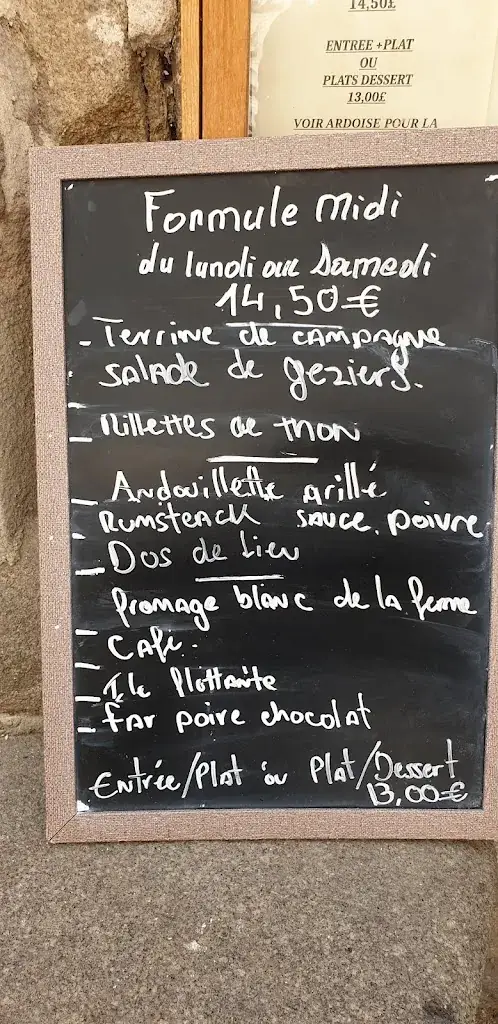 14,50£
ENTREE +PLAT
OU
PLATS DESSERT
13,00£
VOIR ARDOISE POUR LA
Formule Midi
du lundi au Samedi
14,50€
- Terrine de campagne
- salade de geziers.
- Rillettes de thon
- Andouillette grillé
- Rumsteack sauce poivre
- Dos de lieu
fromage blanc de la ferme
- Café.
- Ile flottante
- far poire chocolat
Entrée/Plat ou Plat/Dessert
13,00€